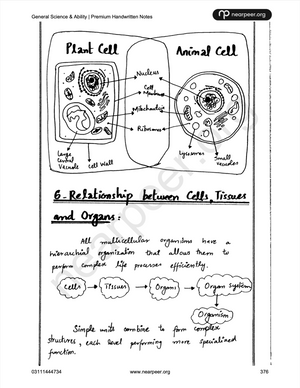 General Science & Ability | Premium Handwritten Notes
nearpeer.org
Plant Cell
Animal Cell
Nucleus
Cell Membrane
Mitochondria
Ribosomes
Large Central Vacuole
Cell Wall
Lysosomes
Small vacuoles
6-Relationship between Cells, Tissues
and Organs:
All multicellular organisms have a
hierarchical organization that allows them to
perform complex life processes efficiently.
Cells
Tissues
Organs
Organ system
Organism
Simple units combine to form complex
structures, each level performing more specialized
function.
03111444734
www.nearpeer.org
376